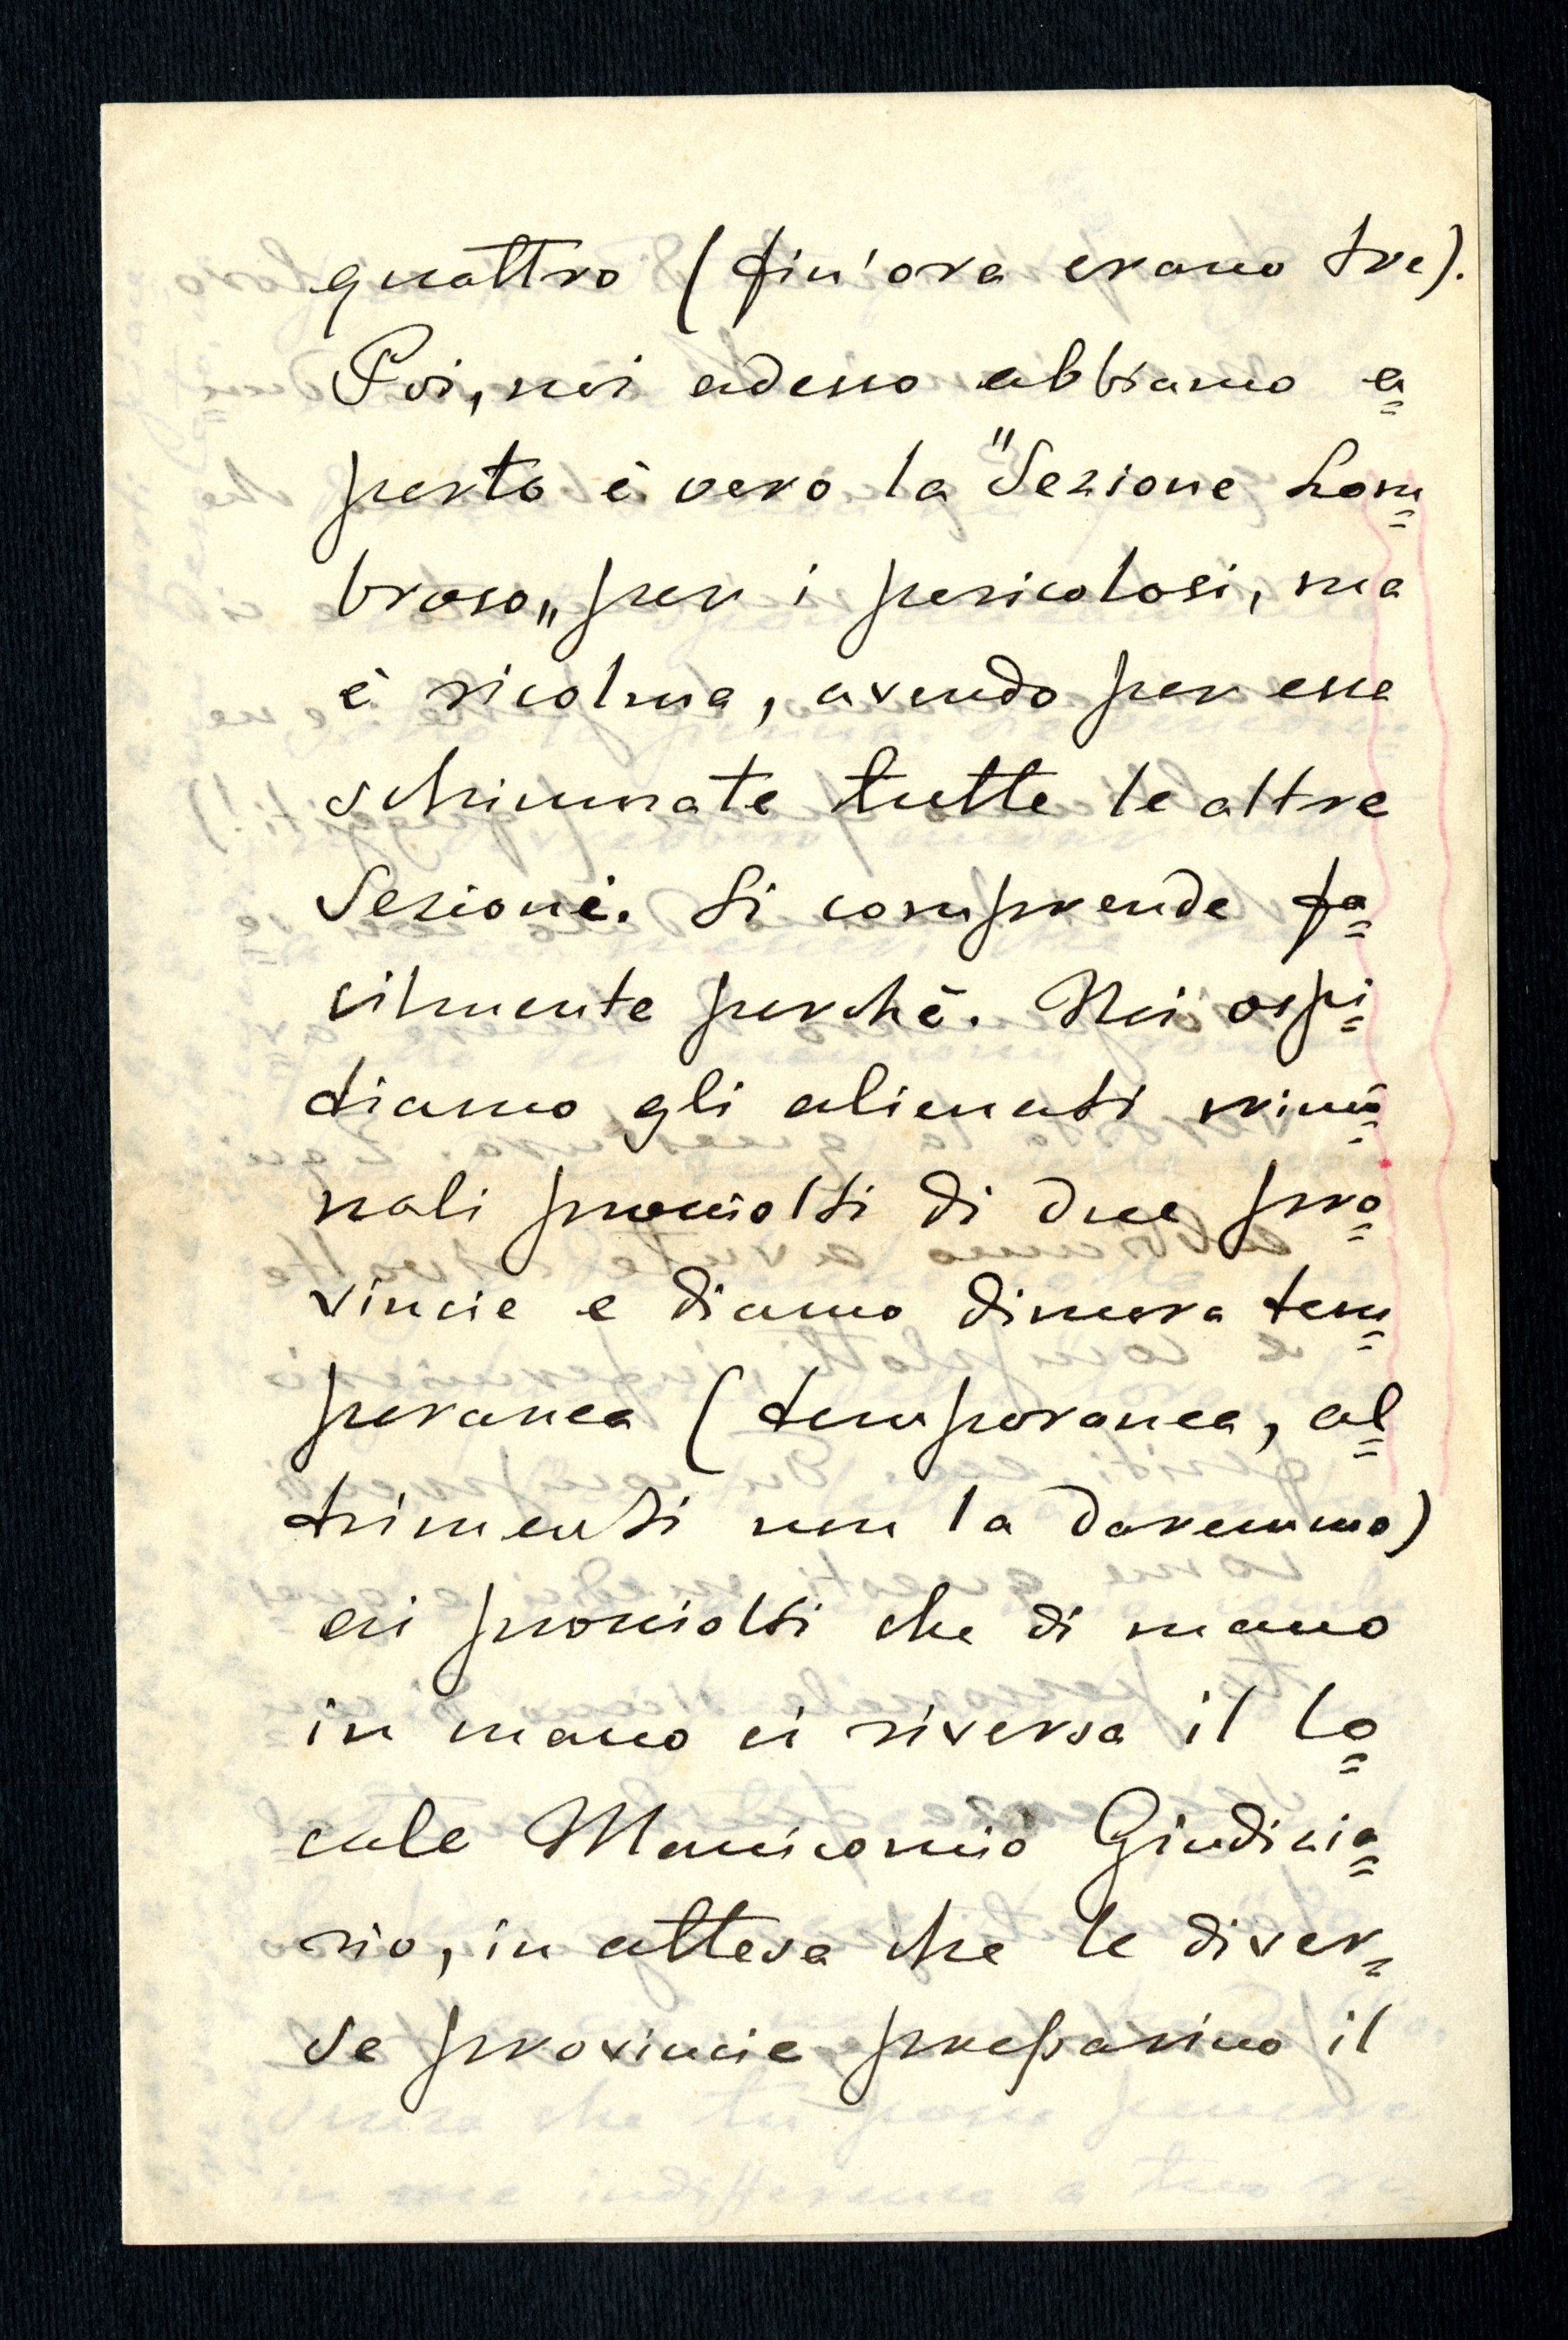 quattro (fin'ora erano tre).
Poi, noi adesso abbiamo a=
perto è vero la "Sezione Lom=
broso„ per i pericolosi, ma
è ricolma, avendo per essa
schiumate tutte le altre
Sezioni. Si comprende fa=
cilmente perchè. Noi ospi=
tiamo gli alienati crimi=
nali prosciolti di due pro=
vincie e diamo dimora tem=
poranea (temporanea, al=
trimenti non la daremmo)
ai prosciolti che di mano
in mano ci riversa il lo=
cale Manicomio Giudizia=
rio, in attesa che le diver=
se provincie preparino il